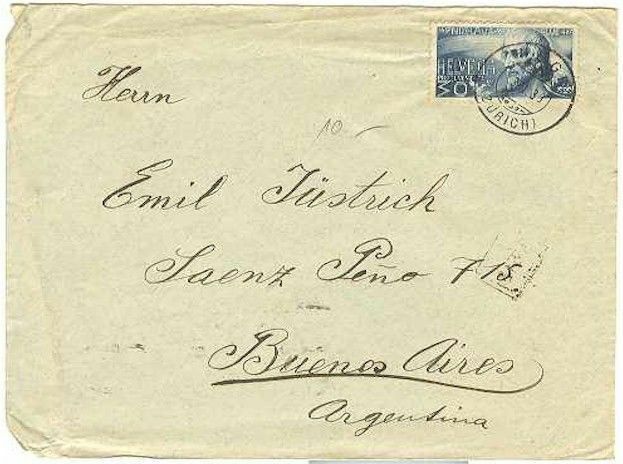 HELVETIA
30
(ZÜRICH)
Herrn
10.-
Emil Jüstrich
Saenz Peño 715
Buenos Aires
Argentina